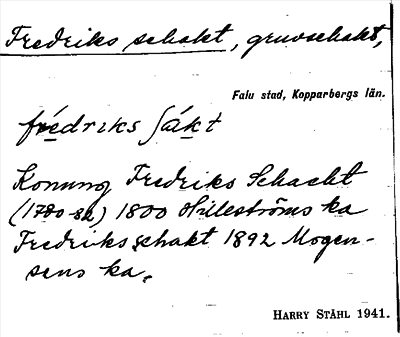 Fredriks schakt, gruvschakt,
Falu stad, Kopparbergs län.
frédriks ſákt
Konung Fredriks Schacht
(1780-82) 1800 Hilleströms ka
Fredriks schakt 1892 Mogen-
sens ka.
HARRY STÅHL 1941.